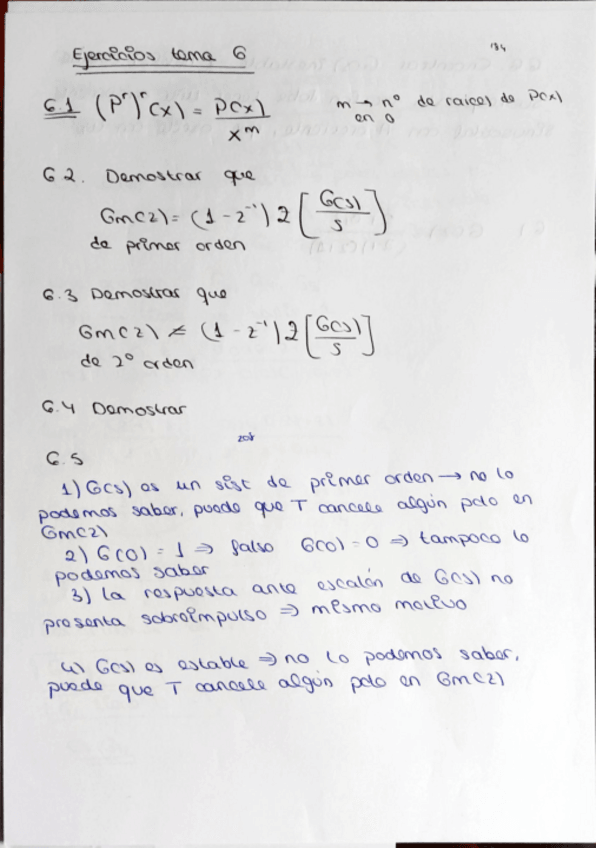 184
Ejercicios tema 6
6.1 (Pʳ)ʳ(x) = P(x) / xᵐ
m → nº de raices de P(x)
en 0
6.2. Demostrar que
Gm(z) = (1 - z⁻¹) Z [G(s) / s]
de primer orden
6.3 Demostrar que
Gm(z) ≠ (1 - z⁻¹) Z [G(s) / s]
de 2º orden
6.4 Demostrar
zoh
6.5
1) G(s) es un sist de primer orden → no lo
podemos saber, puede que T cancele algún polo en
Gm(z)
2) G(0) = 1 ⇒ falso G(0) = 0 ⇒ tampoco lo
podemos saber
3) la respuesta ante escalón de G(s) no
presenta sobreimpulso ⇒ mismo motivo
4) G(s) es estable ⇒ no lo podemos saber,
puede que T cancele algún polo en Gm(z)